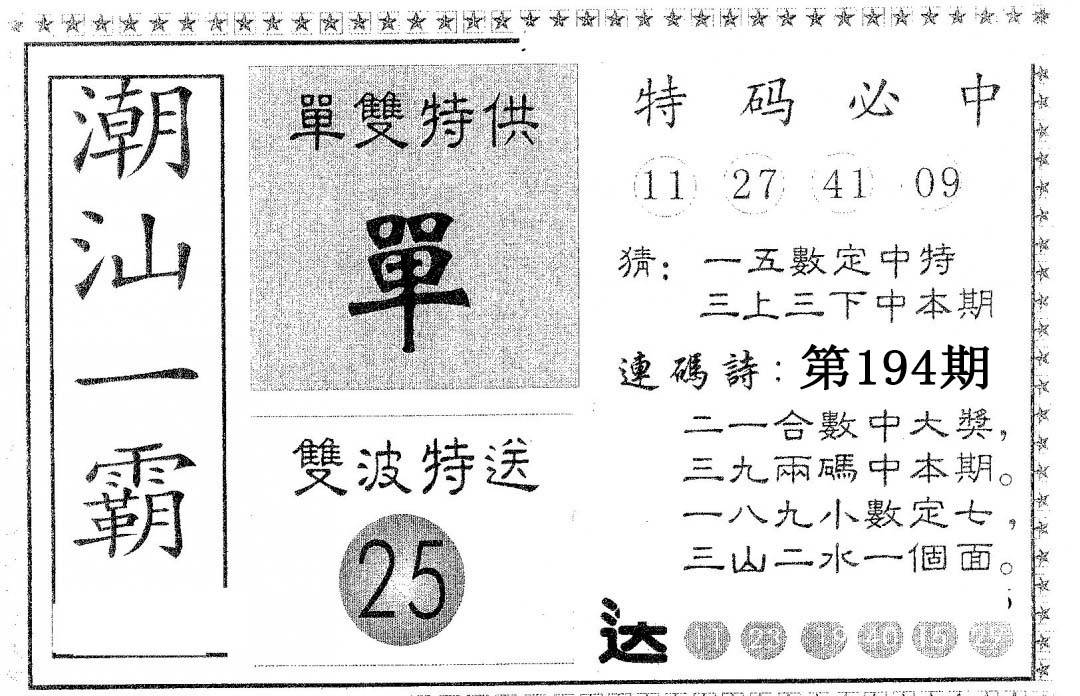 潮汕一霸
單雙特供
單
雙波特送
25
特码必中
11 27 41 09
猜：一五數定中特
三上三下中本期
連碼詩：第194期
二一合數中大獎，
三九兩碼中本期。
一八九小數定七，
三山二水一個面。
达 11 23 19 40 15